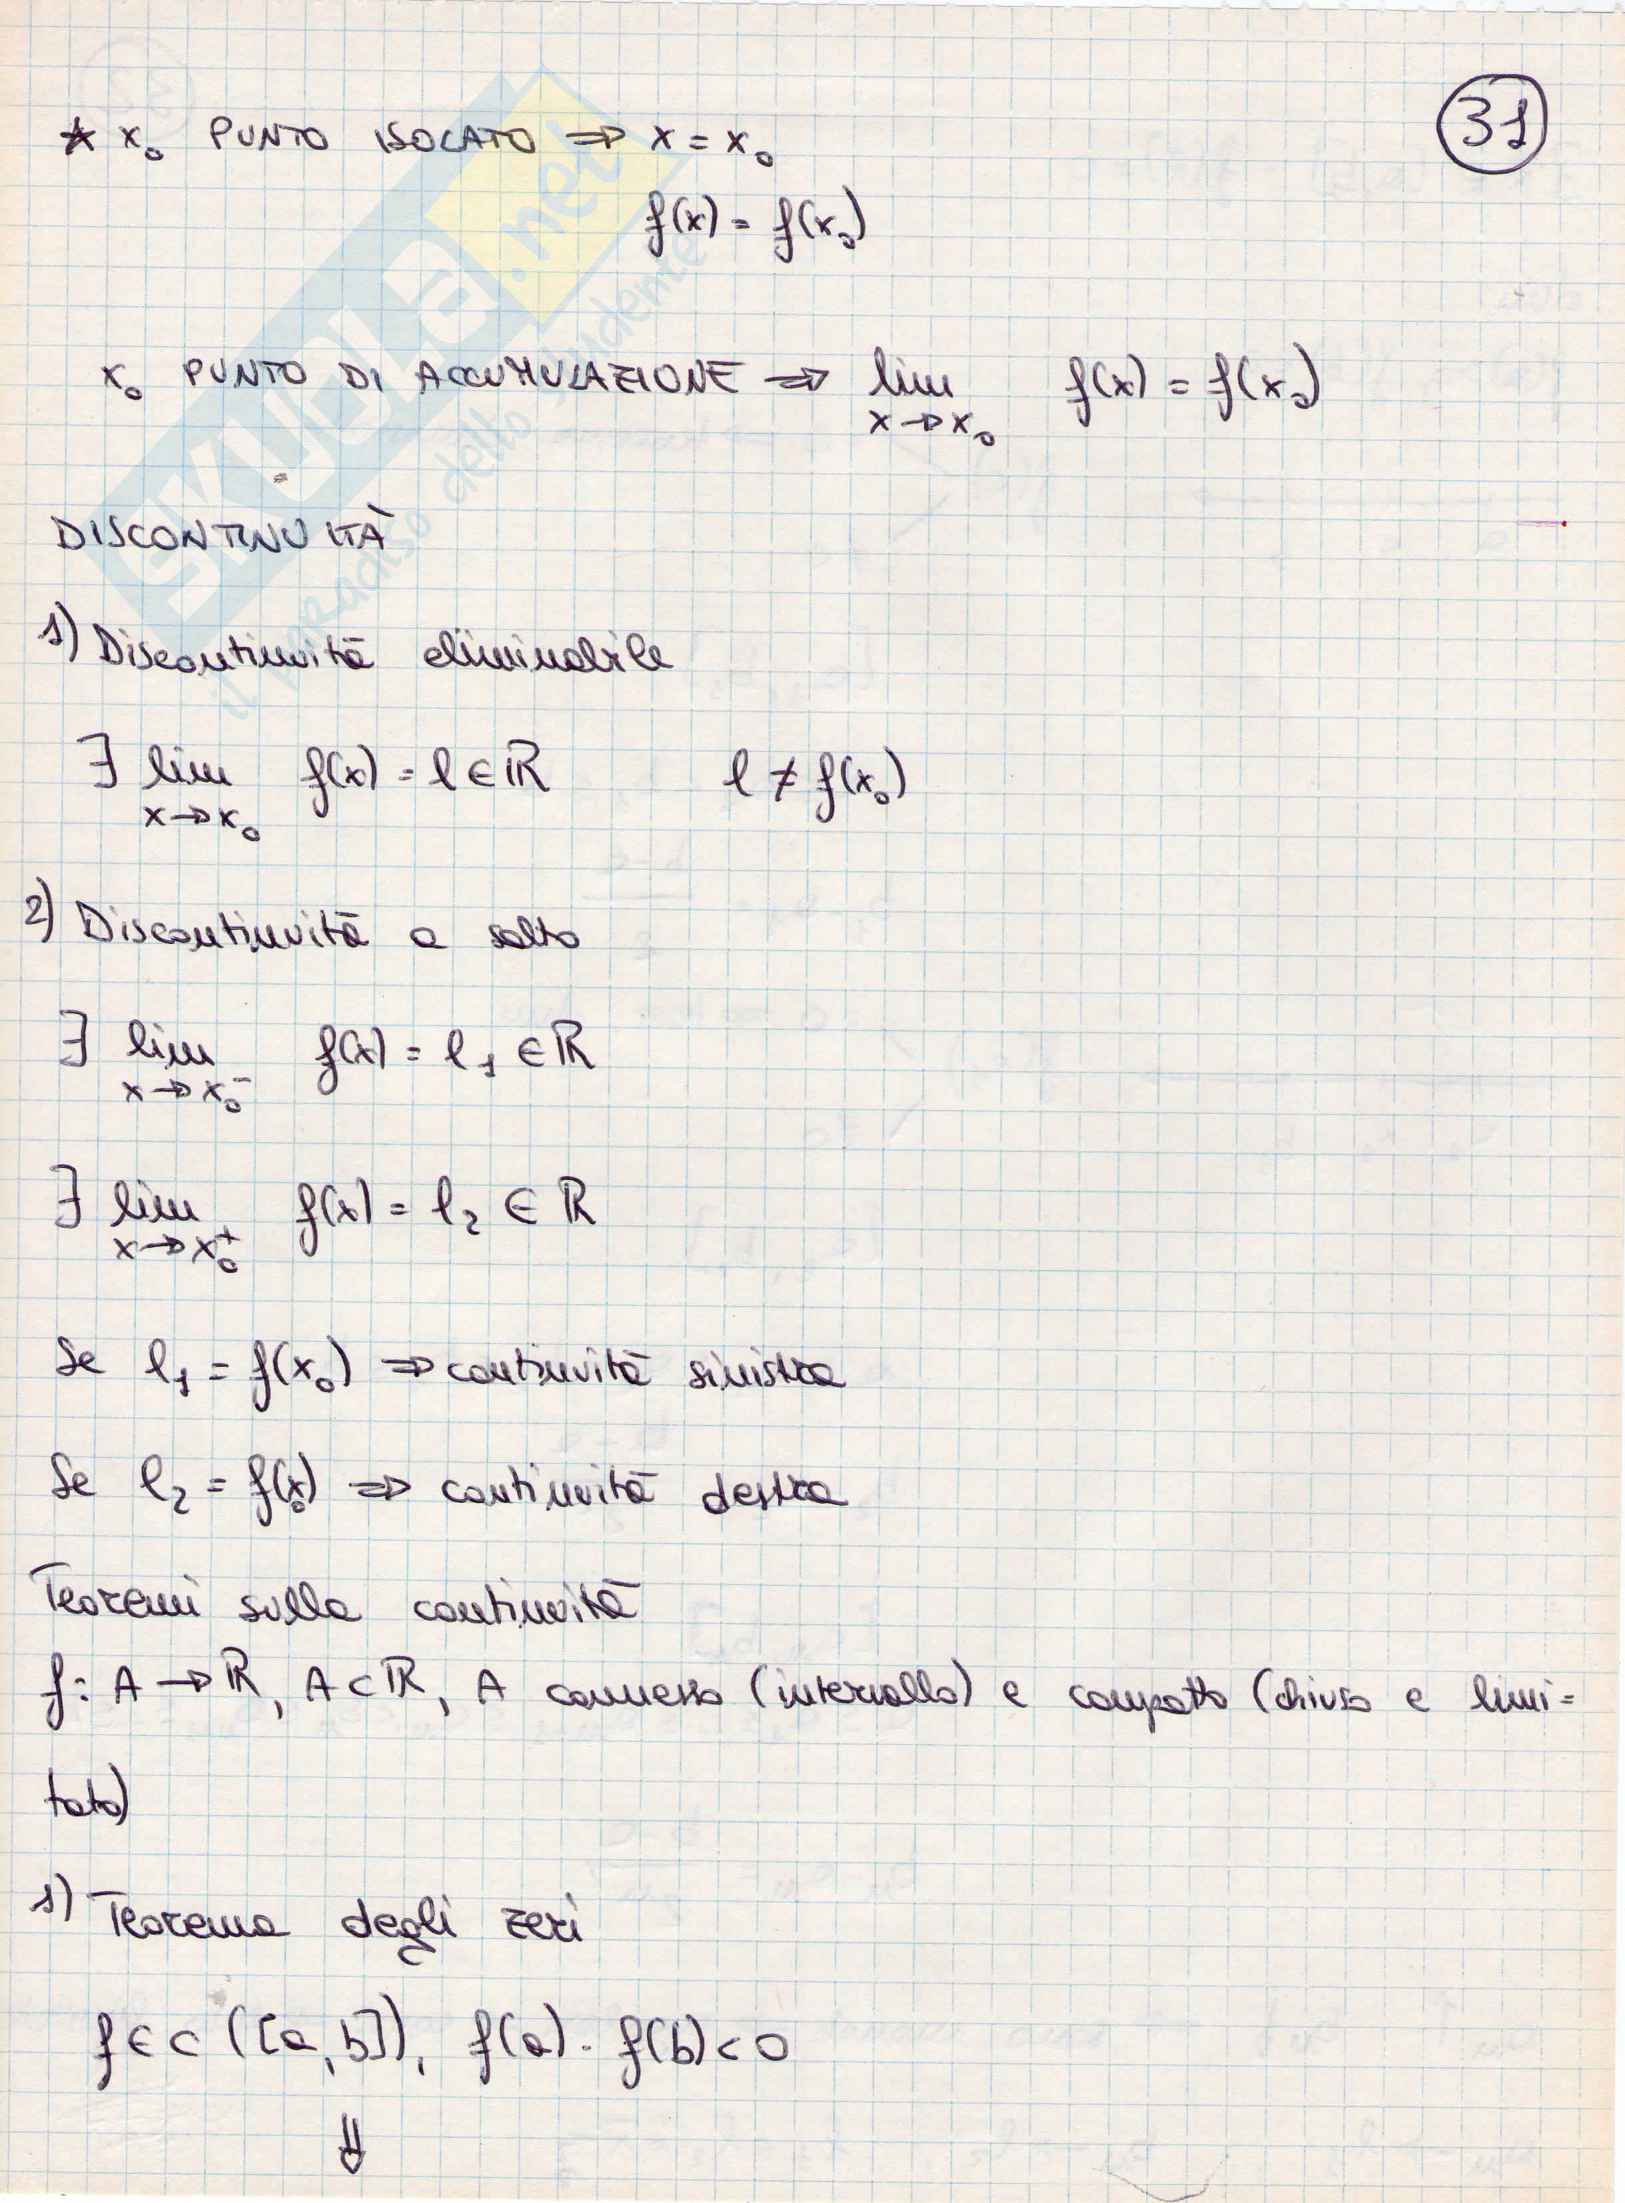 31
* x₀ PUNTO ISOLATO ⇒ x = x₀
f(x) = f(x₀)
x₀ PUNTO DI ACCUMULAZIONE ⇒ lim f(x) = f(x₀)
x→x₀
DISCONTINUITÀ
1) Discontinuità eliminabile
∃ lim f(x) = l ∈ ℝ l ≠ f(x₀)
x→x₀
2) Discontinuità a salto
∃ lim f(x) = l₁ ∈ ℝ
x→x₀⁻
∃ lim f(x) = l₂ ∈ ℝ
x→x₀⁺
Se l₁ = f(x₀) ⇒ continuità sinistra
Se l₂ = f(x₀) ⇒ continuità destra
Teoremi sulla continuità
f: A → ℝ, A ⊂ ℝ, A connesso (intervallo) e compatto (chiuso e limi=
tato)
1) Teorema degli zeri
f ∈ C ([a, b]), f(a) · f(b) < 0
⇓
SKUOLA.net
il paradiso dello studente